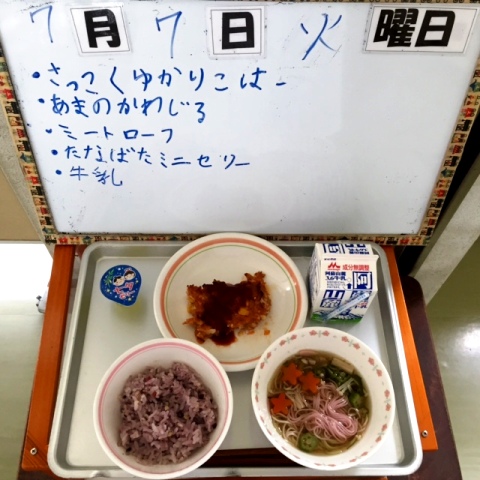 7月7日火曜日
・さっこくゆかりごはー
・あまのかわじる
・ミートローフ
・たなばたミニゼリー
・牛乳
成分無調整